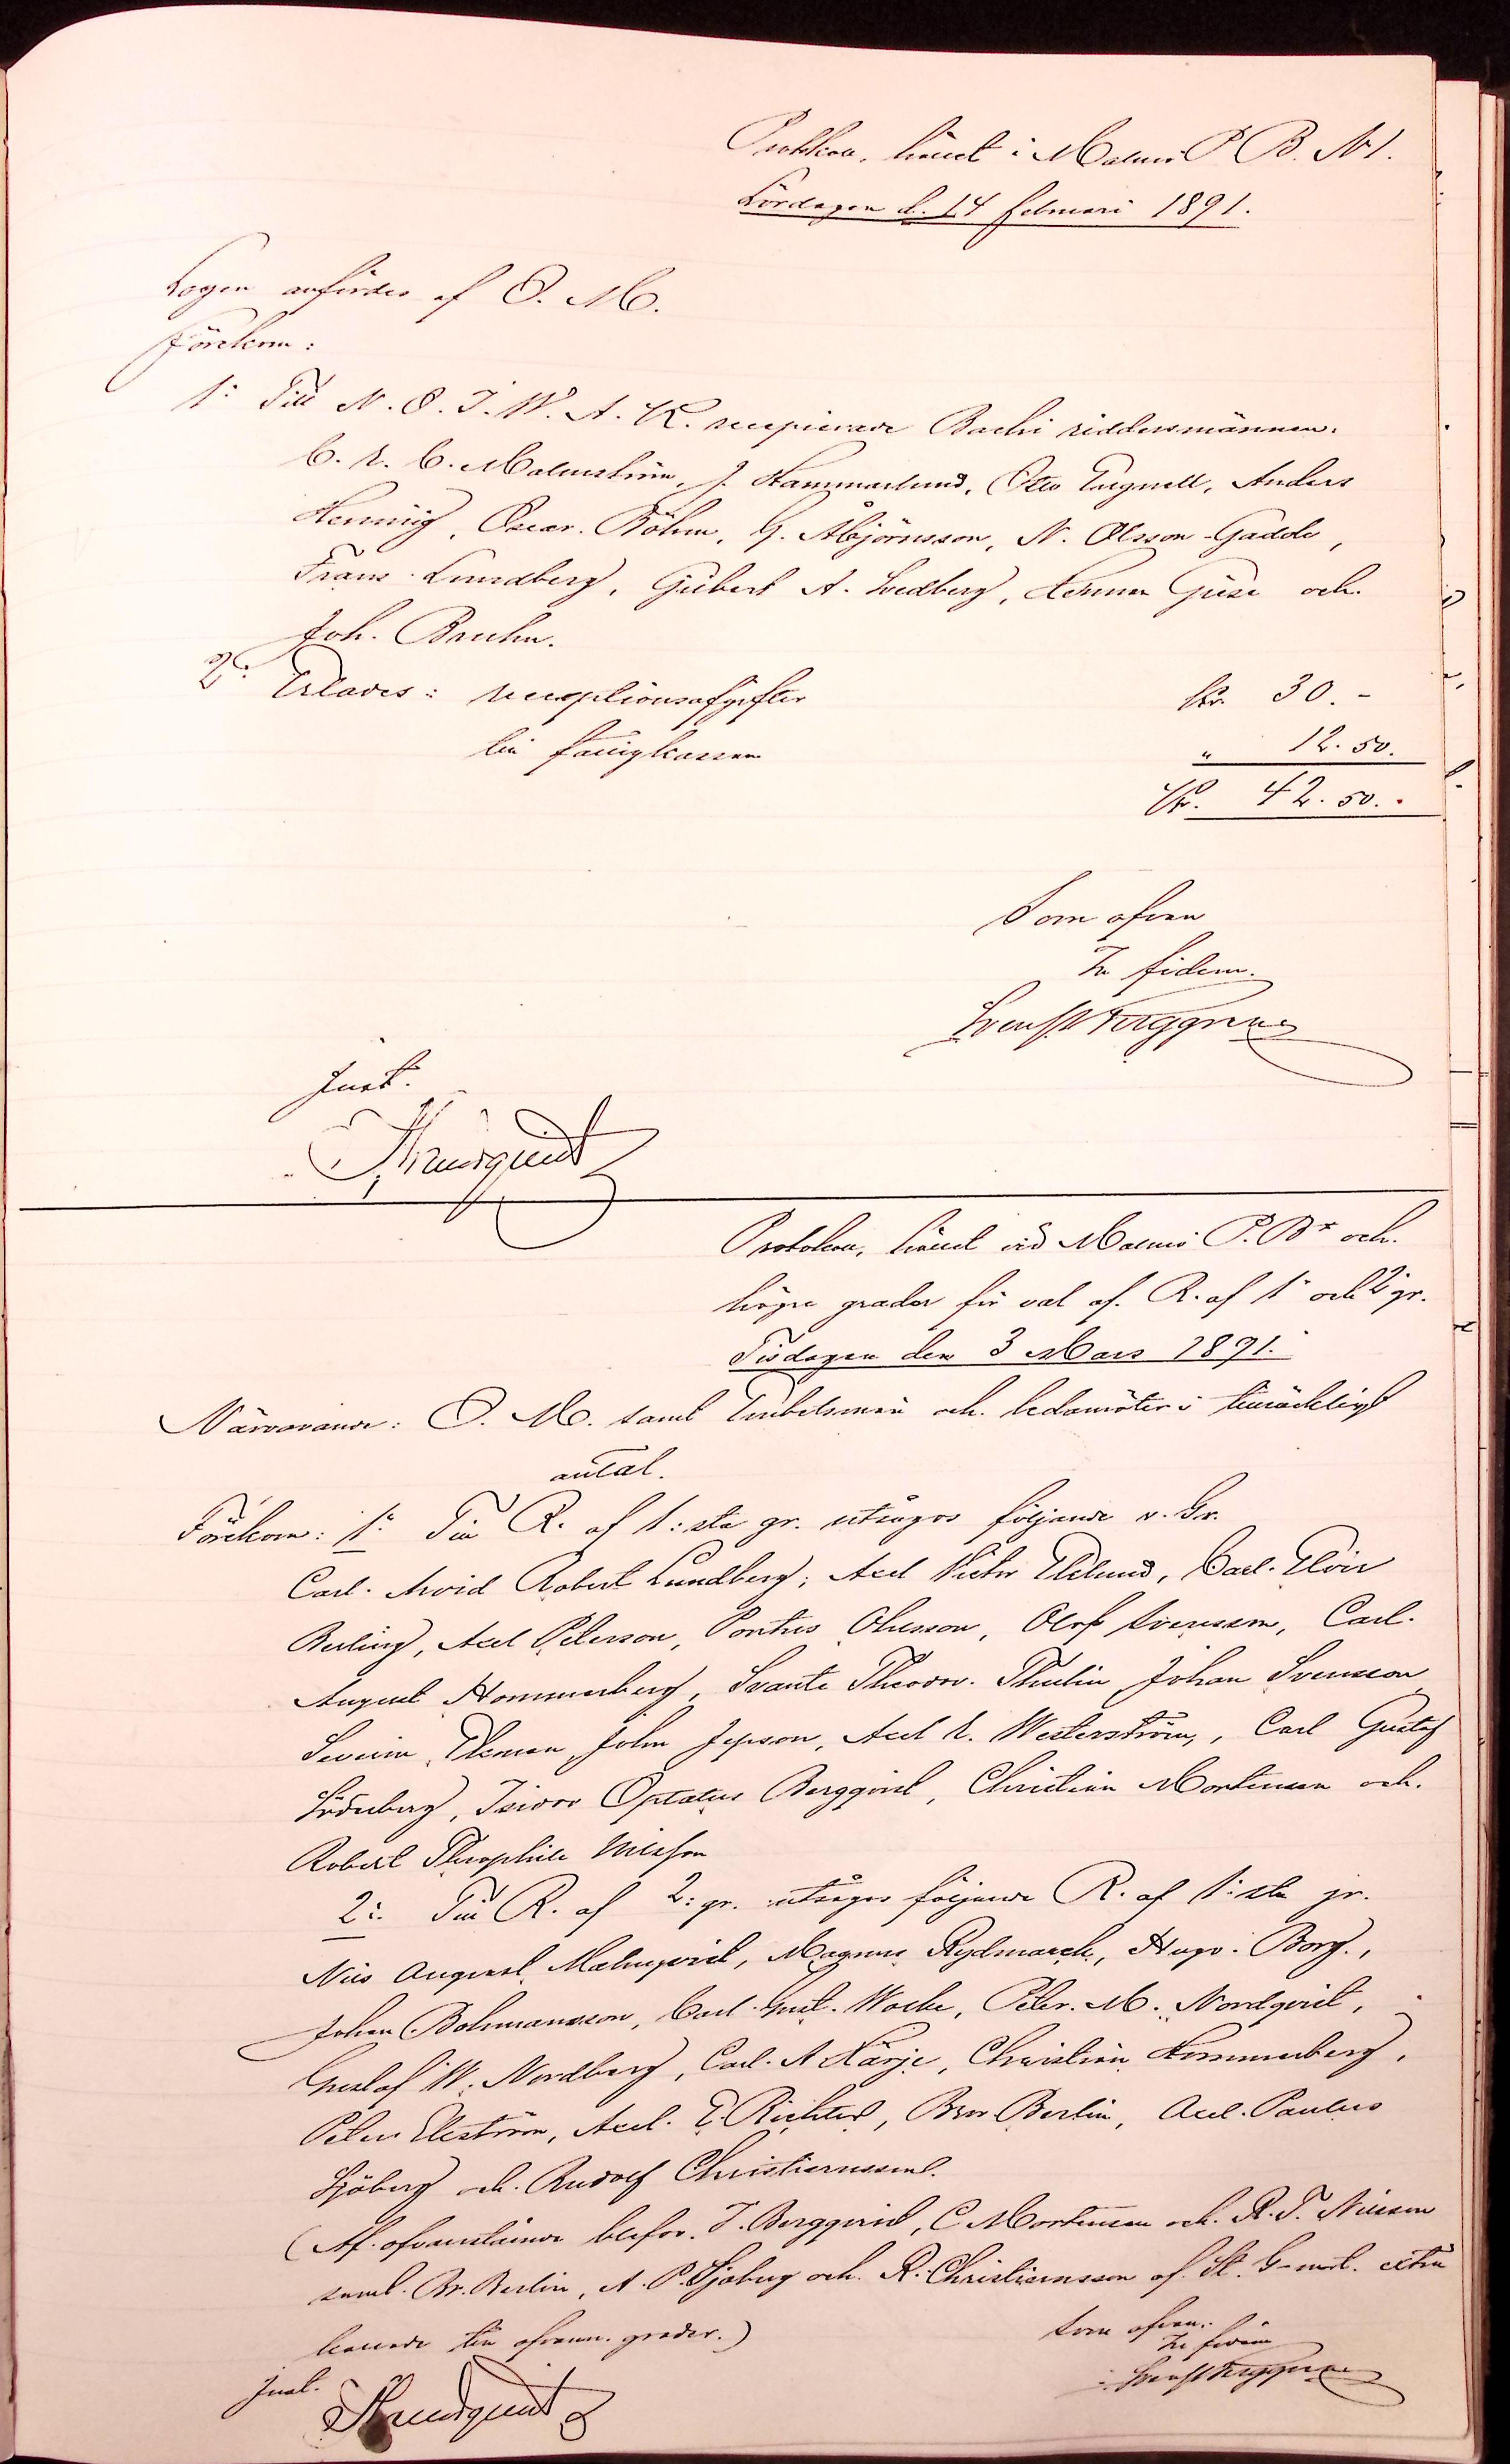 Protokoll, hållet i Malmö P. B. N:1.
Lördagen d. 14 februari 1891.
Logen anfördes af O. M.
Förekom:
1: Till N. O. I. W. A. K. recipierade Bachi riddersmännen:
C. E. C. Malmström, J. Hammarlund, Otto Tugnell, Anders
Hennig, Oscar Böhm, G. Åbjörnsson, N. Olsson-Gadde,
Frans Lundberg, Gilbert A. Svedberg, Herman Giese och
Joh. Bruhn.
2: Erlades: receptionsafgifter Kr. 30.-
till fattigkassan " 12.50.
Kr. 42.50.
Som ofvan
In fidem.
Just.
Protokoll, hållet vid Malmö P. Br och
högre grader för val af R. af 1: och 2: gr.
Tisdagen den 3 Mars 1891.
Närvarande: O. M. samt Embetsmän och ledamöter i tillräckligt
antal.
Förekom: 1: Till R. af 1:sta gr. utsågos följande v. Br.
Carl Arvid Robert Lundberg, Axel Victor Eklund, Carl Elvir
Berling, Axel Peterson, Pontus Ohlsson, Olof Svensson, Carl
August Hommerberg, Svante Theodor Thulin, Johan Svensson
Severin Ekman, John Jepson, Axel E. Westerström, Carl Gustaf
Söderberg, Isidor Optatus Bergqvist, Christian Mortensen och
Robert Theophile Nilsson
2: Till R. af 2: gr. utsågos följande R. af 1:sta gr.
Nils August Malmqvist, Magnus Rydmarck, Hugo Borg,
Johan Bohmansson, Carl Gust. Wolke, Peter M. Nordqvist,
Gustaf W. Nordberg, Carl A Härje, Christian Hommerberg,
Peter Ekström, Axel E. Richter, Bror Berlin, Axel Paulus
Sjöberg och Rudolf Christiernsson.
(Af ofvanstående blefvo I. Bergqvist, C Mortensen och R. T. Nilsson
samt Br. Berlin, A. P. Sjöberg och R. Christiernsson af St. G-mst. extra
kallade till ofvann. grader.)
Som ofvan:
In fidem
Just.